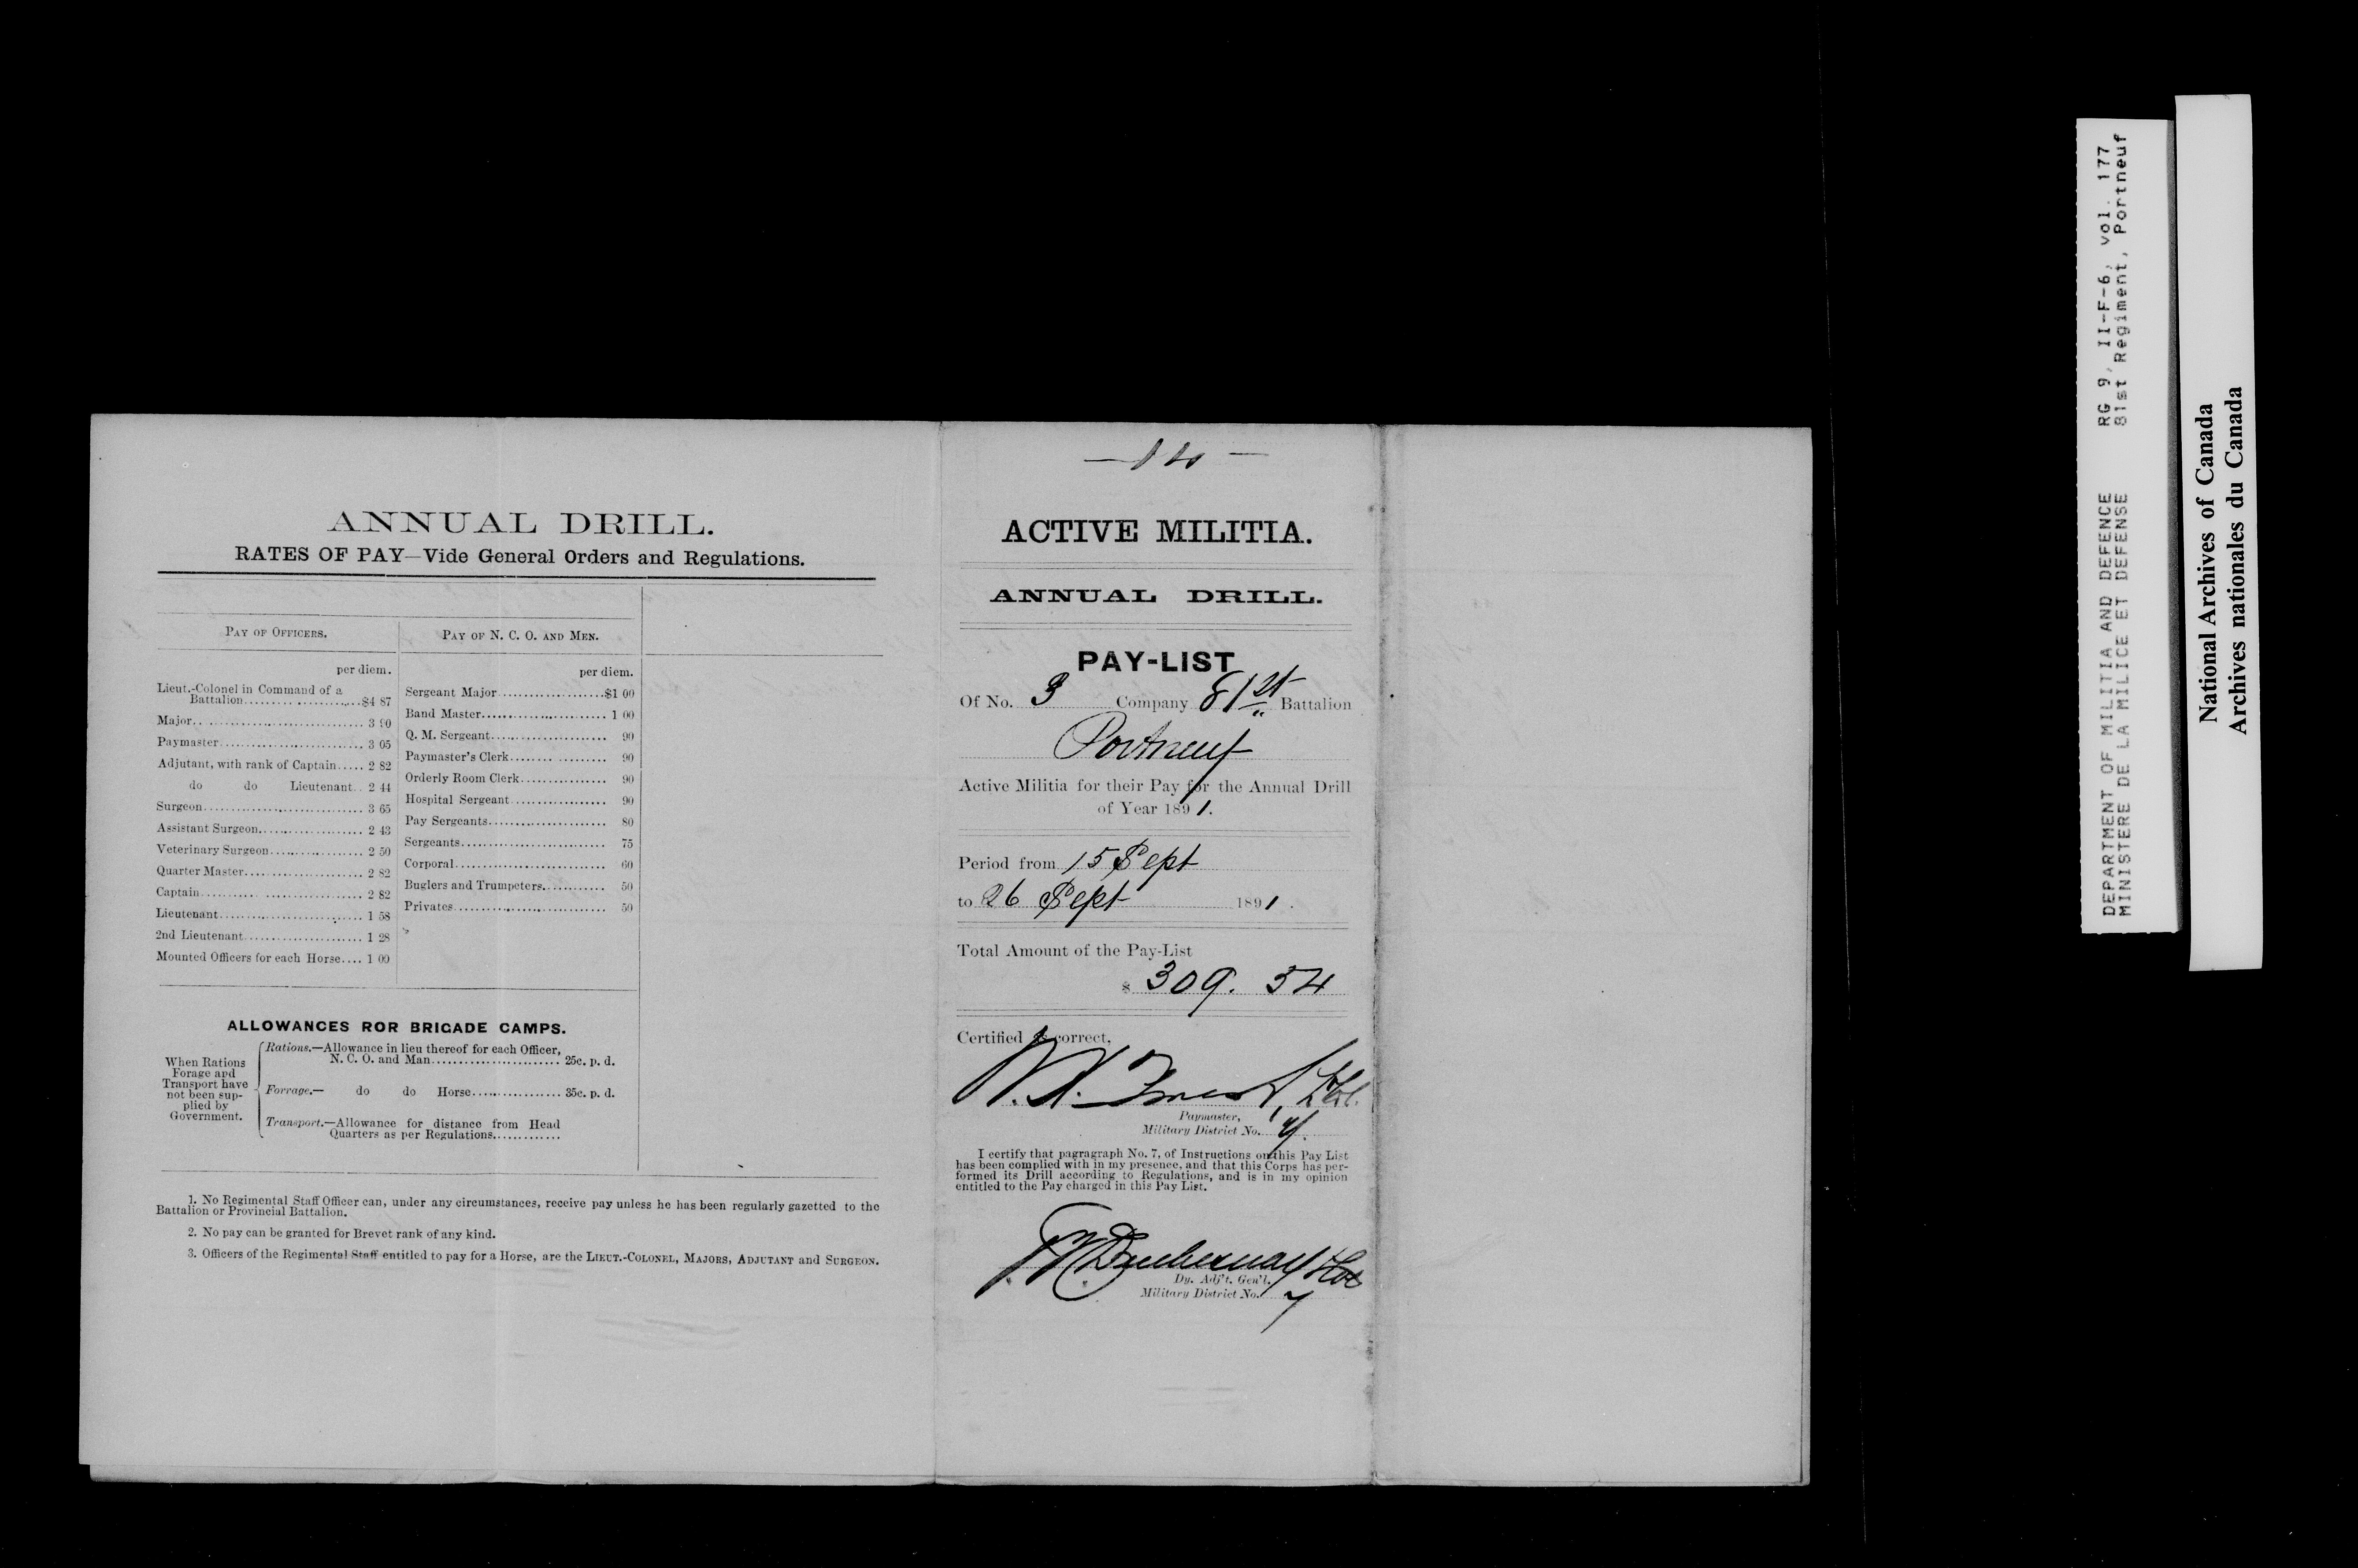 ANNUAL DRILL.
RATES OF PAY—Vide General Orders and Regulations.
PAY OF OFFICERS.
per diem.
Lieut.-Colonel in Command of a
Battalion.....................$4 87
Major.............................. 3 90
Paymaster........................ 3 05
Adjutant, with rank of Captain..... 2 82
do do Lieutenant.. 2 44
Surgeon............................ 3 65
Assistant Surgeon.................... 2 43
Veterinary Surgeon.................. 2 50
Quarter Master...................... 2 82
Captain............................ 2 82
Lieutenant.......................... 1 58
2nd Lieutenant...................... 1 28
Mounted Officers for each Horse.... 1 00
PAY OF N. C. O. AND MEN.
per diem.
Sergeant Major....................$1 00
Band Master........................ 1 00
Q. M. Sergeant...................... 90
Paymaster's Clerk.................. 90
Orderly Room Clerk................ 90
Hospital Sergeant.................. 90
Pay Sergeants...................... 80
Sergeants.......................... 75
Corporal............................ 60
Buglers and Trumpeters............ 50
Privates............................ 50
ALLOWANCES ROR BRIGADE CAMPS.
When Rations
Forage and
Transport have
not been sup-
plied by
Government.
Rations.—Allowance in lieu thereof for each Officer,
N. C. O. and Man........................ 25c. p. d.
Forrage.— do do Horse................. 35c. p. d.
Transport.—Allowance for distance from Head
Quarters as per Regulations.............
1. No Regimental Staff Officer can, under any circumstances, receive pay unless he has been regularly gazetted to the
Battalion or Provincial Battalion.
2. No pay can be granted for Brevet rank of any kind.
3. Officers of the Regimental Staff entitled to pay for a Horse, are the LIEUT.-COLONEL, MAJORS, ADJUTANT and SURGEON.
ACTIVE MILITIA.
ANNUAL DRILL.
PAY-LIST
Of No. 3 Company 81st Battalion
Portneuf
Active Militia for their Pay for the Annual Drill
of Year 1891.
Period from 15 Sept
to 26 Sept 1891.
Total Amount of the Pay-List
$ 309. 54
Certified as correct,
Paymaster,
Military District No. 7
I certify that pagragraph No. 7, of Instructions on this Pay List
has been complied with in my presence, and that this Corps has per-
formed its Drill according to Regulations, and is in my opinion
entitled to the Pay charged in this Pay List.
Dy. Adj't. Gen'l.
Military District No. 7
DEPARTMENT OF MILITIA AND DEFENCE RG 9, II-F-6, vol. 177
MINISTERE DE LA MILICE ET DEFENSE 81st Regiment, Portneuf
National Archives of Canada
Archives nationales du Canada